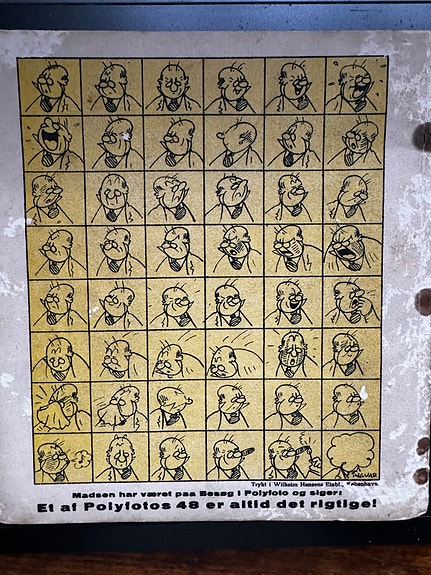 INGVAR
Trykt i Wilhelm Hansens Etabl., København.
Madsen har været paa Besøg i Polyfoto og siger:
Et af Polyfotos 48 er altid det rigtige!